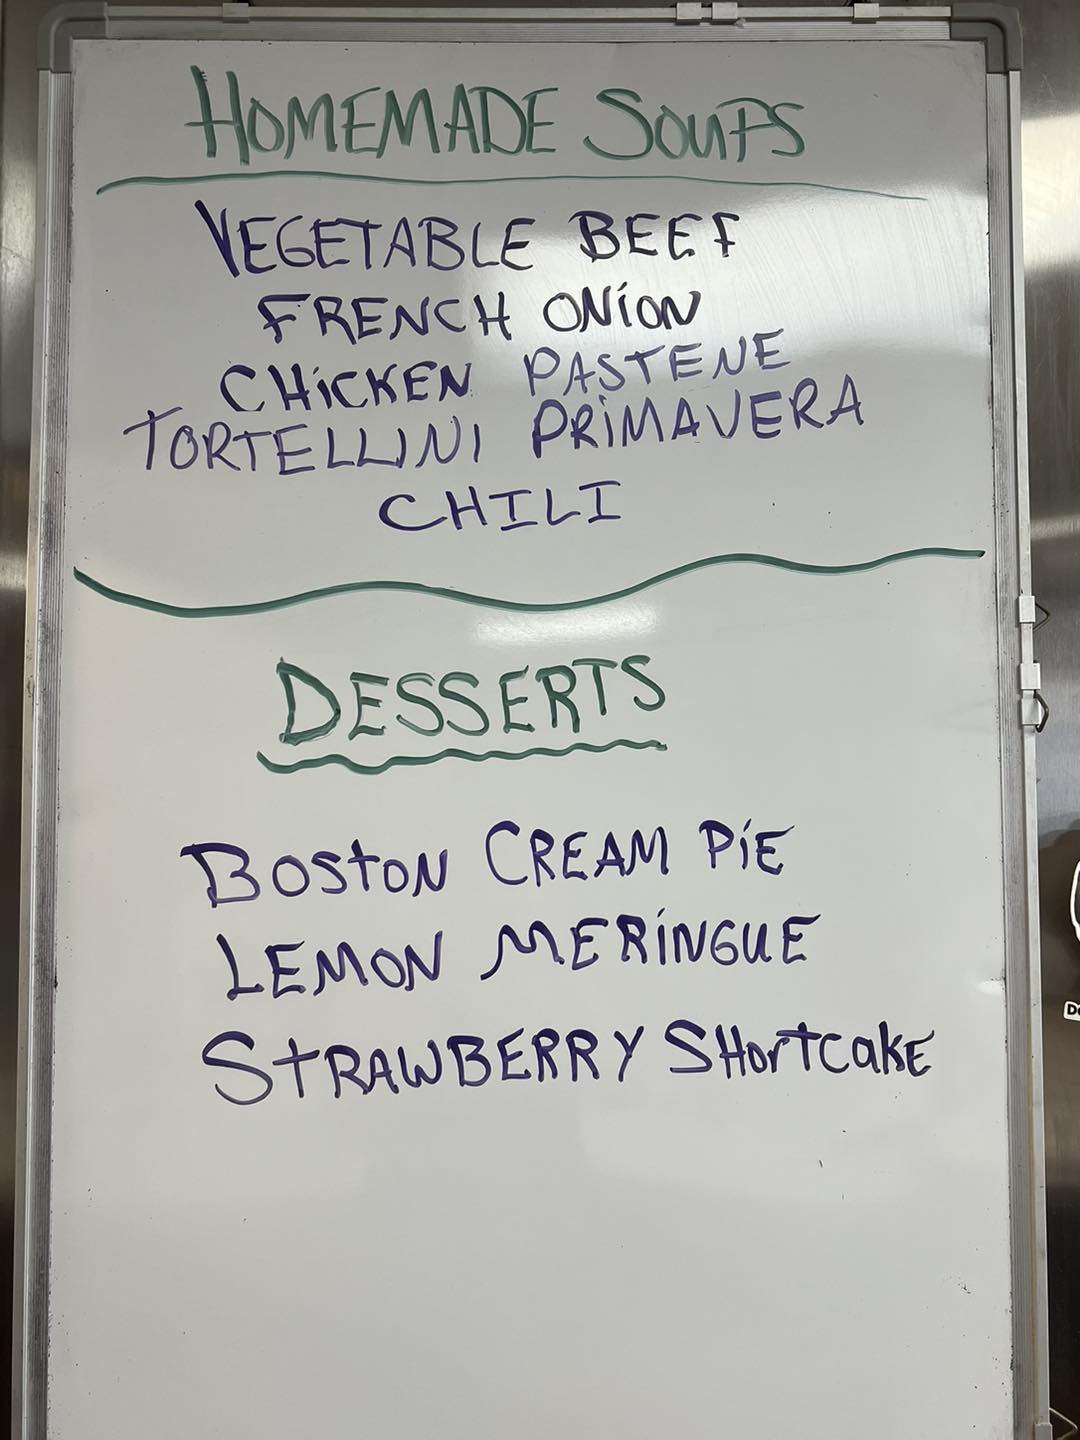 HOMEMADE SOUPS
VEGETABLE BEEF
FRENCH ONION
CHICKEN PASTENE
TORTELLINI PRIMAVERA
CHILI
DESSERTS
BOSTON CREAM PIE
LEMON MERINGUE
STRAWBERRY SHORTCAKE